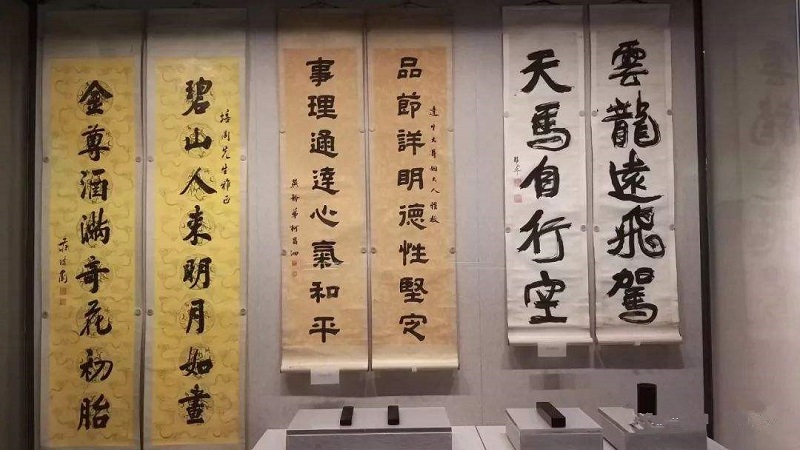 雲龍遠飛駕
天馬自行空
品節詳明德性堅定
事理通達心氣和平
碧山人來明月如畫
金尊酒滿奇花初胎